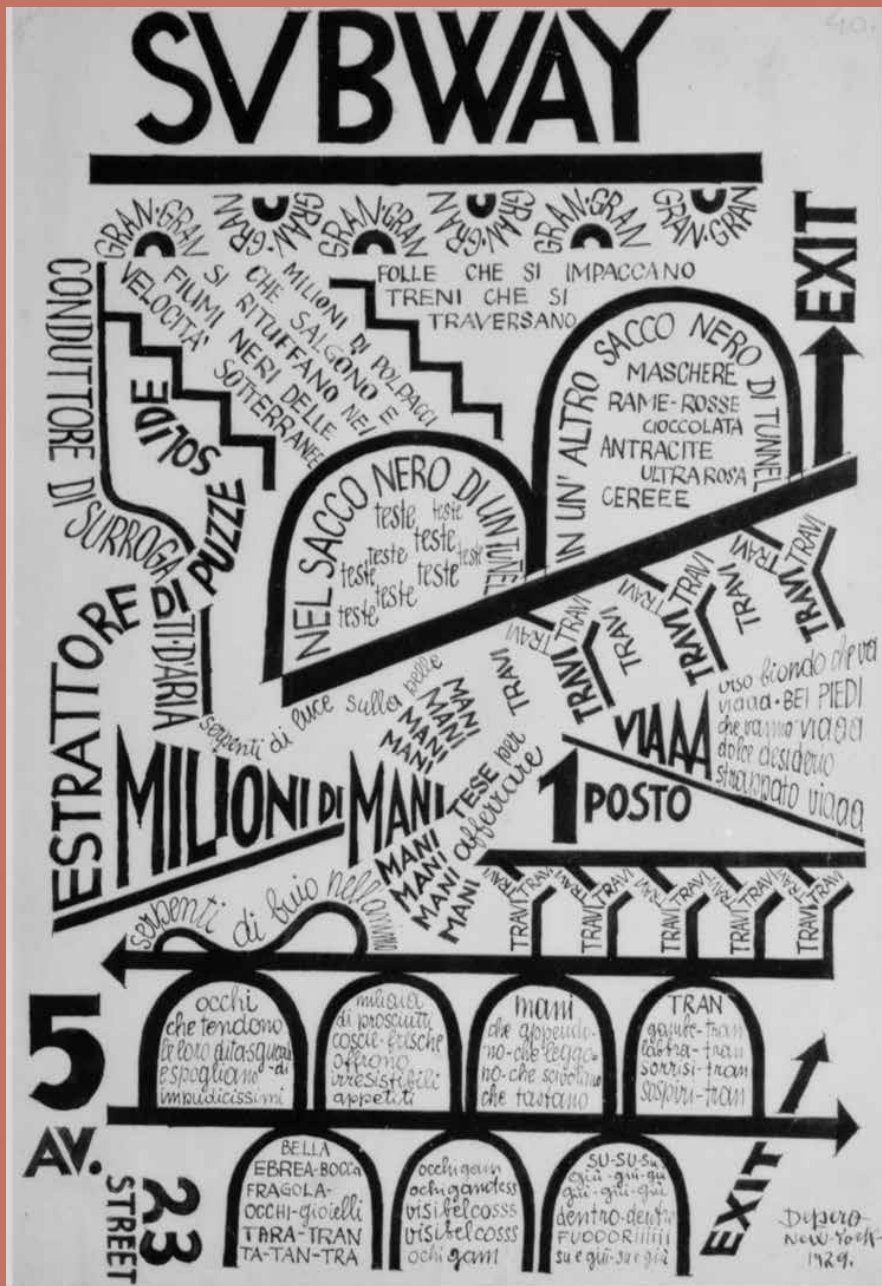 SVBWAY
40.
GRAN·GRAN
GRAN·GRAN
GRAN·GRAN
GRAN·GRAN
GRAN·GRAN
GRAN·GRAN
EXIT
CONDUTTORE DI SURROGA
TI·D'ARIA
VELOCITA'
MILIONI DI POLPACCI
CHE SALGONO E
SI RITUFFANO NEI
FIUMI NERI DELLE
SOTTERRANEE
FOLLE CHE SI IMPACCANO
TRENI CHE SI
TRAVERSANO
ESTRATTORE DI PUZZE
SOLIDE
NEL SACCO NERO DI UN TUNEL
teste teste
teste
teste teste
teste teste
teste teste
IN UN' ALTRO SACCO NERO DI TUNNEL
MASCHERE
RAME-ROSSE
CIOCCOLATA
ANTRACITE
ULTRAROSA
CEREEE
TRAVI TRAVI TRAVI
TRAVI TRAVI TRAVI
TRAVI TRAVI TRAVI
TRAVI TRAVI TRAVI
TRAVI
serpenti di luce sulla pelle
MANI
MANI
MANI
MANI
MANI
MILIONI DI MANI
TESE per
afferrare
1 POSTO
MANI
MANI
MANI
MANI
VIAAA
viso biondo che va
viaaa·BEI PIEDI
che vanno viaaa
dolce desiderio
strappato viaaa
TRAVI TRAVI TRAVI TRAVI TRAVI
TRAVI TRAVI TRAVI TRAVI TRAVI
TRAVI TRAVI TRAVI TRAVI TRAVI
serpenti di buio nell'animo
5
AV.
23
STREET
occhi
che tendono
le loro dita
e spogliano-di
impudicissimi
miliaia
di prosciutti
coscie-frische
offrono
irresistibili
appetiti
mani
che appendo-
no-che leggo-
no-che scivolano
che tastano
TRAN
gambe-tran
labbra-tran
sorrisi-tran
sospiri-tran
BELLA
EBREA-BOCCA
FRAGOLA-
OCCHI-gioielli
TARA-TRAN
TA-TAN-TRA
occhigam
ochigamdess
visibelcosss
visibelcosss
ochigam
SU-SU-SU
giù-giù-giù
giù-giù-giù
dentro-dentro
FUOOORIiiiii
su e giù-su e giù
EXIT
Depero
New-York-
1929.